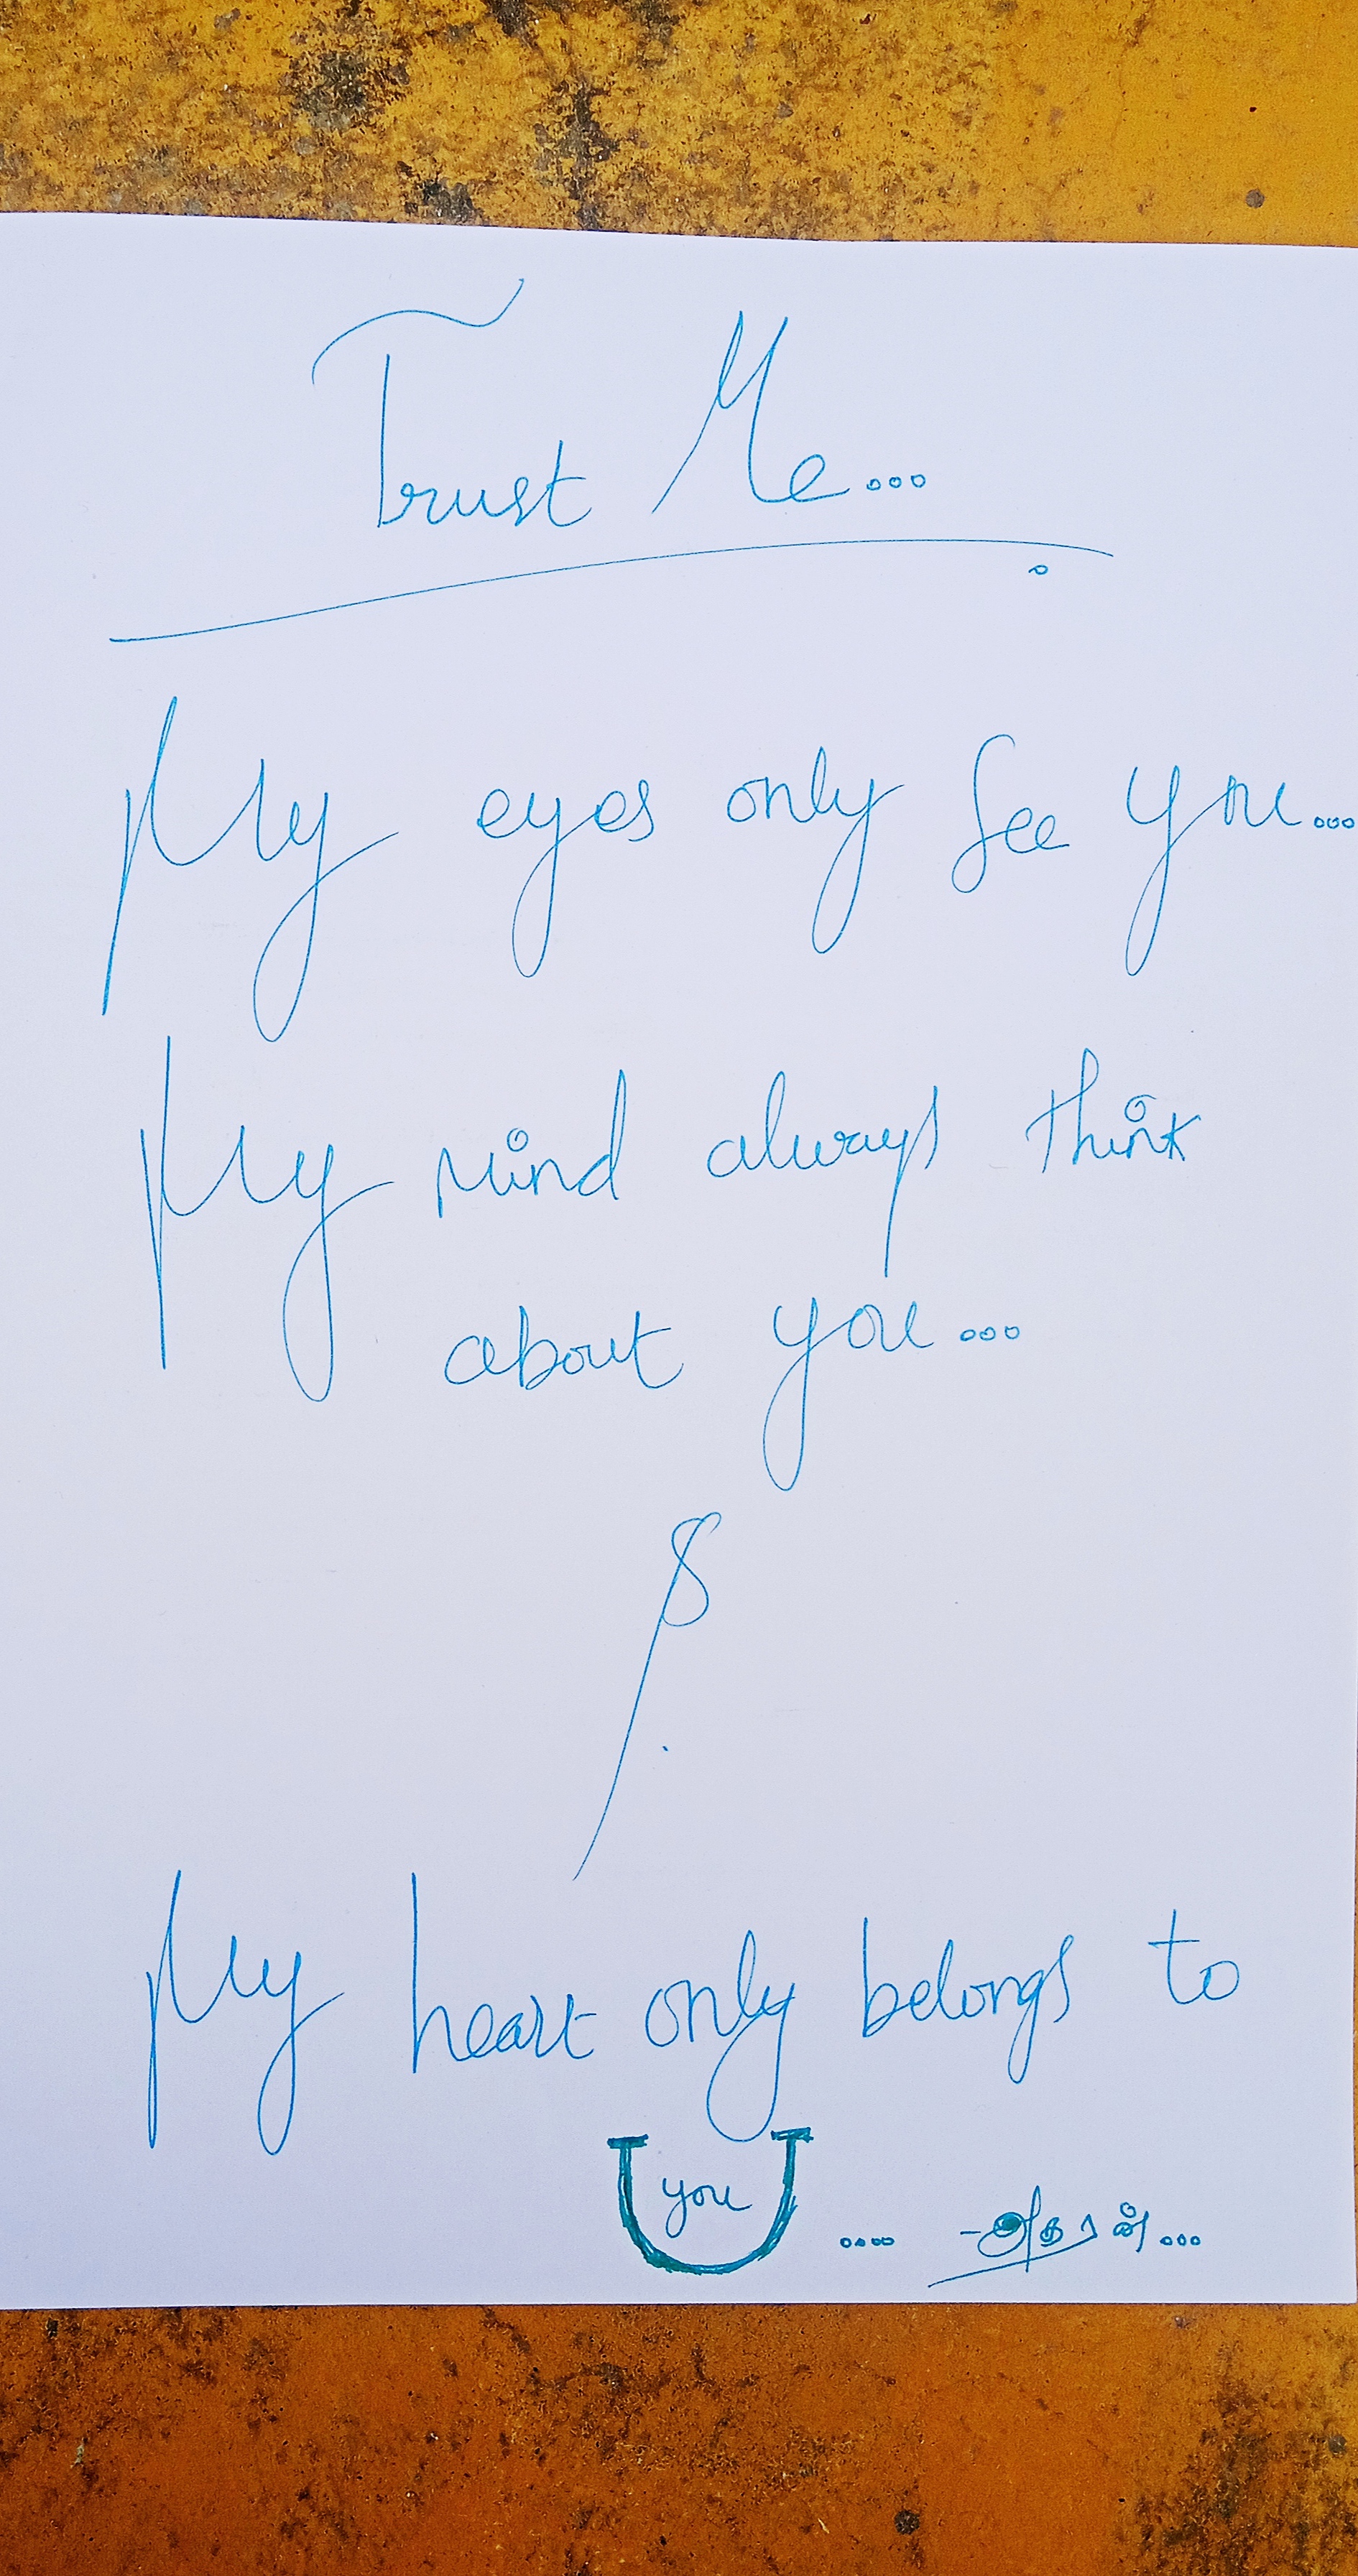 Trust Me...
My eyes only see you...
My mind always think
about you...
&
My heart only belongs to
you .... - அதரன்...